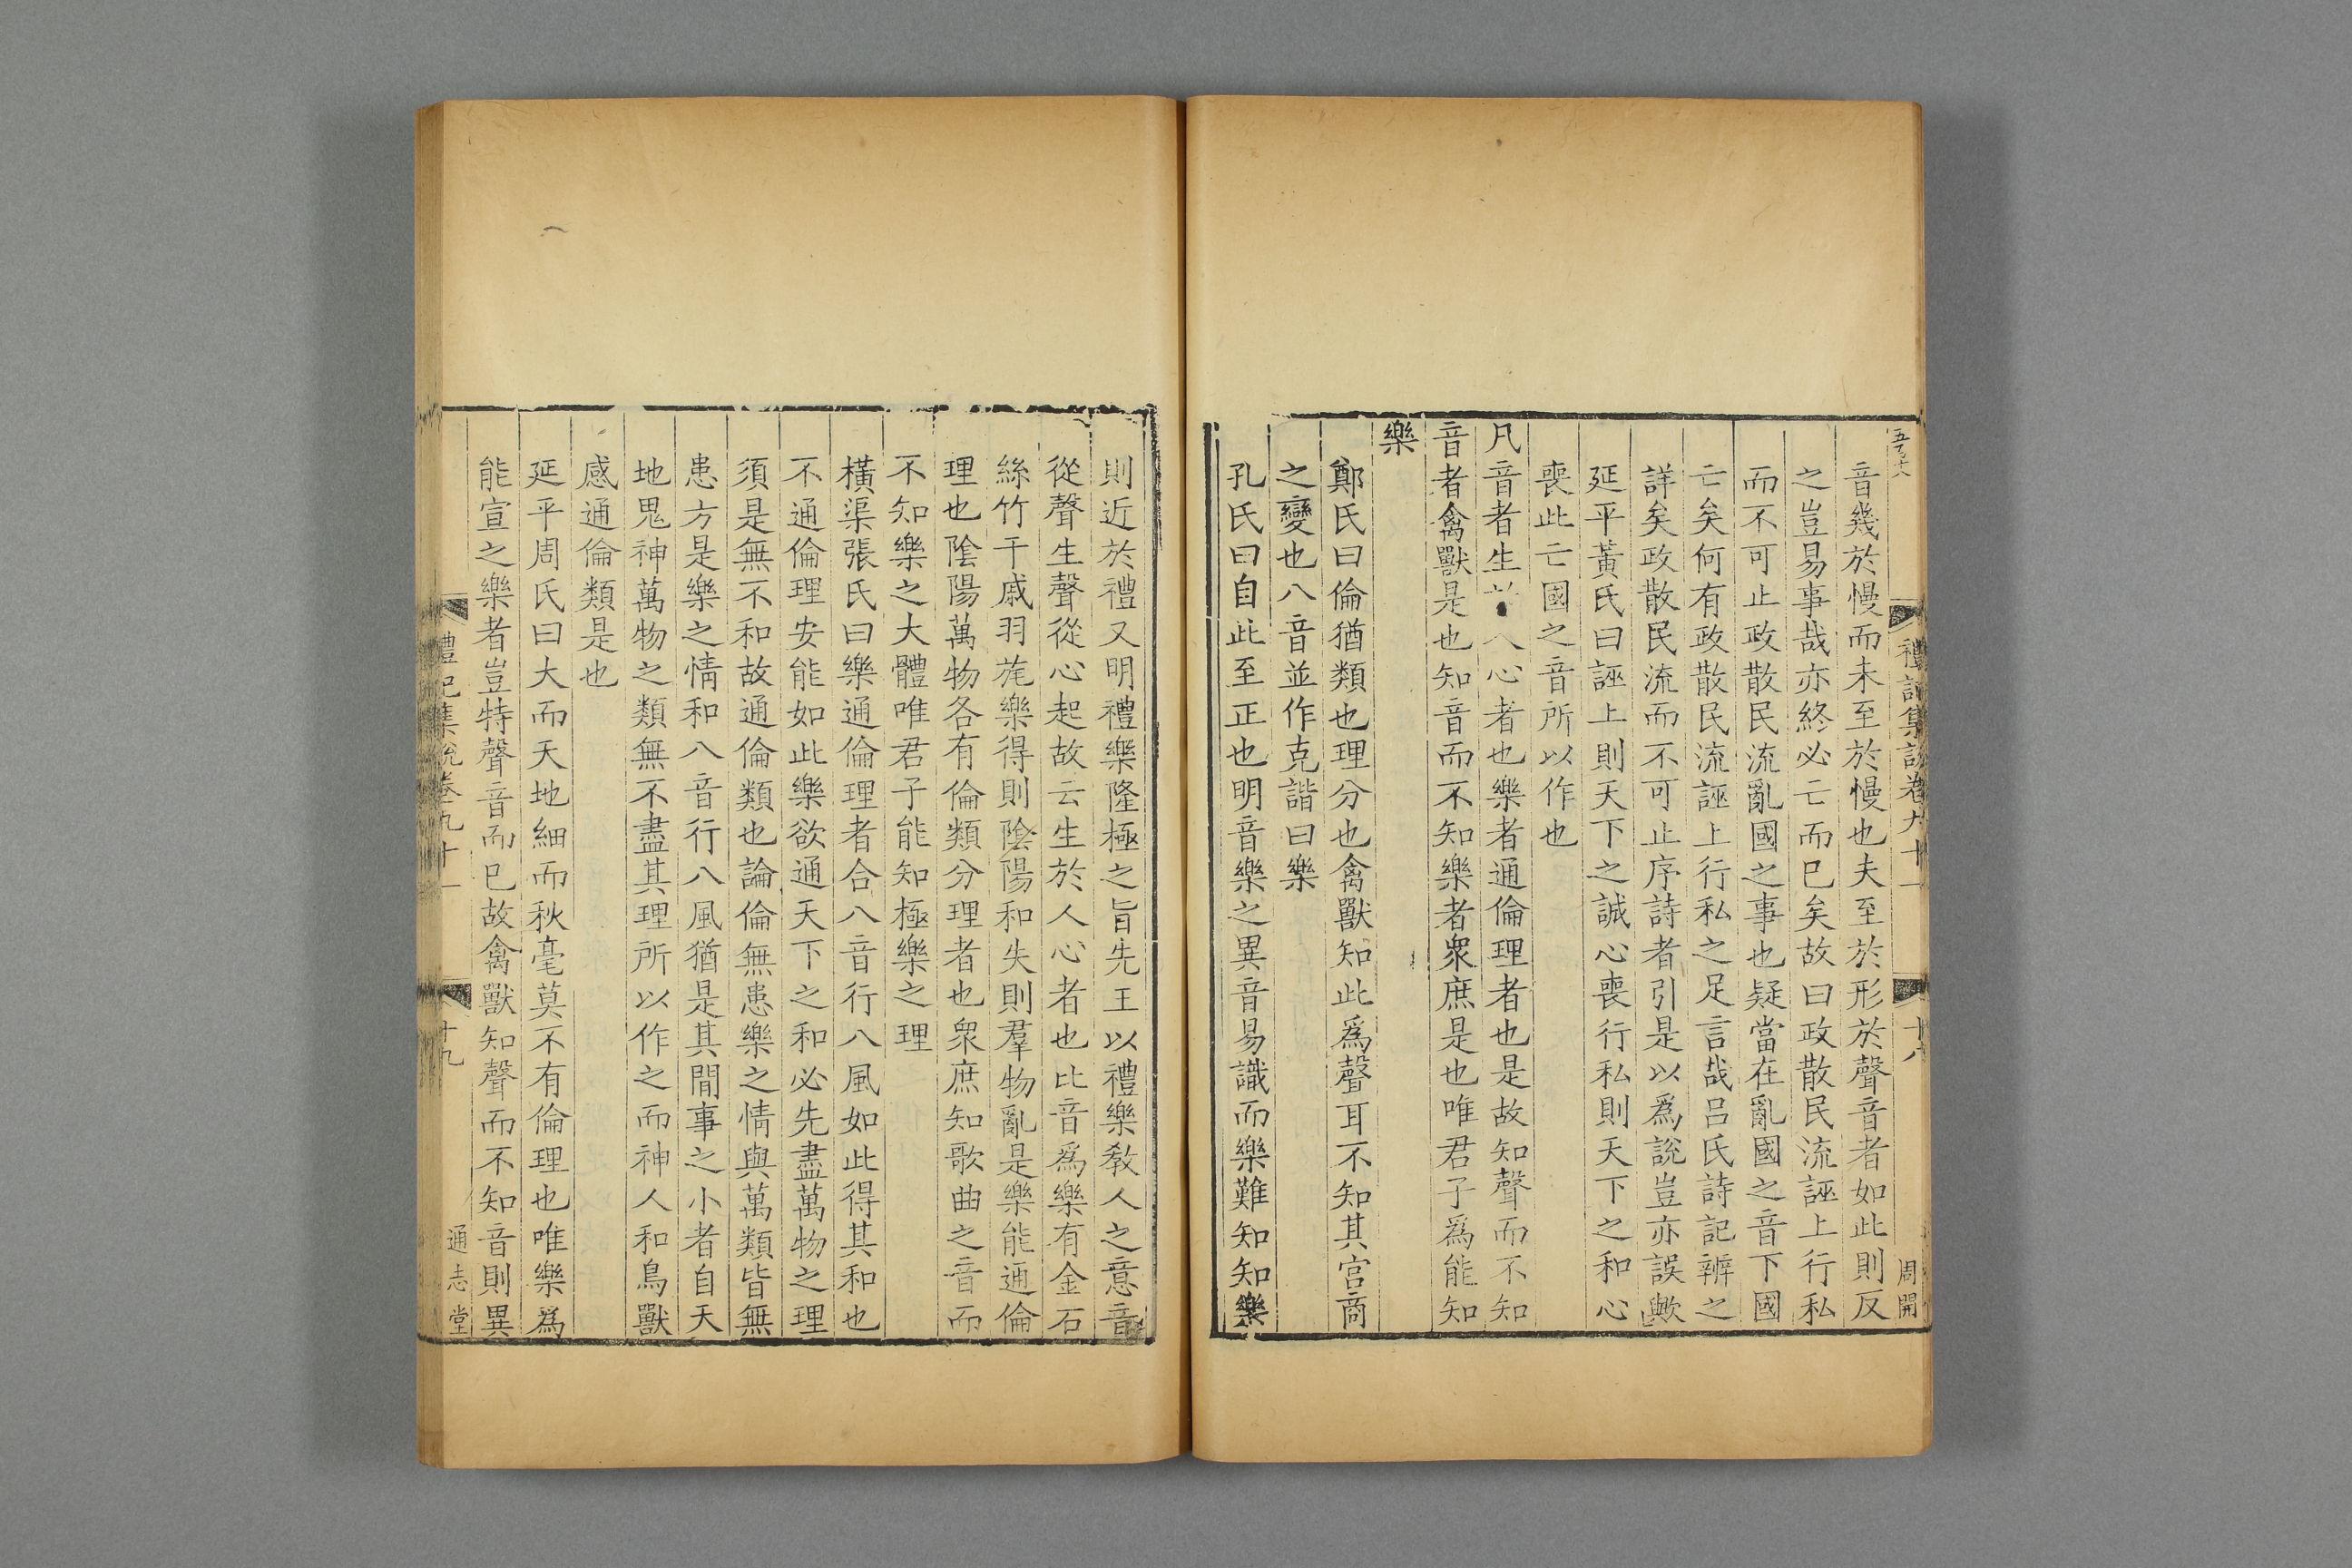 禮記集說卷九十一
十八
周開
音幾於慢而未至於慢也夫至於形於聲音者如此則反
之豈易事哉亦終必亡而已矣故曰政散民流誣上行私
而不可止政散民流亂國之事也疑當在亂國之音下國
亡矣何有政散民流誣上行私之足言哉呂氏詩記辨之
詳矣政散民流而不可止序詩者引是以爲說豈亦誤歟
延平黃氏曰誣上則天下之誠心喪行私則天下之和心
喪此亡國之音所以作也
凡音者生 人心者也樂者通倫理者也是故知聲而不知
音者禽獸是也知音而不知樂者衆庶是也唯君子爲能知
樂
鄭氏曰倫猶類也理分也禽獸知此爲聲耳不知其宮商
之變也八音並作克諧曰樂
孔氏曰自此至正也明音樂之異音易識而樂難知知樂
則近於禮又明禮樂隆極之旨先王以禮樂敎人之意音
從聲生聲從心起故云生於人心者也比音爲樂有金石
絲竹干戚羽旄樂得則陰陽和失則羣物亂是樂能通倫
理也陰陽萬物各有倫類分理者也衆庶知歌曲之音而
不知樂之大體唯君子能知極樂之理
橫渠張氏曰樂通倫理者合八音行八風如此得其和也
不通倫理安能如此樂欲通天下之和必先盡萬物之理
須是無不和故通倫類也論倫無患樂之情與萬類皆無
患方是樂之情和八音行八風猶是其閒事之小者自天
地鬼神萬物之類無不盡其理所以作之而神人和鳥獸
感通倫類是也
延平周氏曰大而天地細而秋毫莫不有倫理也唯樂爲
能宣之樂者豈特聲音而已故禽獸知聲而不知音則異
禮記集說卷九十一
十九
通志堂